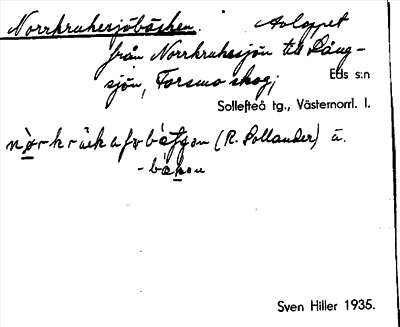 Norrkrukesjöbäcken. Avloppet
från Norrkrukesjön till Lång-
sjön, Forsmo skog, Eds s:n
Sollefteå tg., Västernorrl. l.
(R. Sollander) ä.
Sven Hiller 1935.